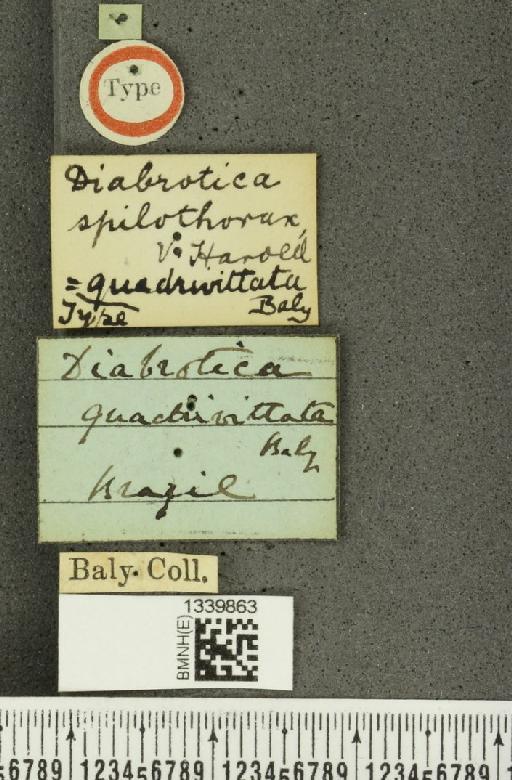 Type
Diabrotica
spilothorax,
V. Harold
= quadrivittata
Type Baly
Diabrotica
quadrivittata
Baly
Brazil
Baly Coll.
1339863
BMNH(E)
6789 123456789 123456789 123456789